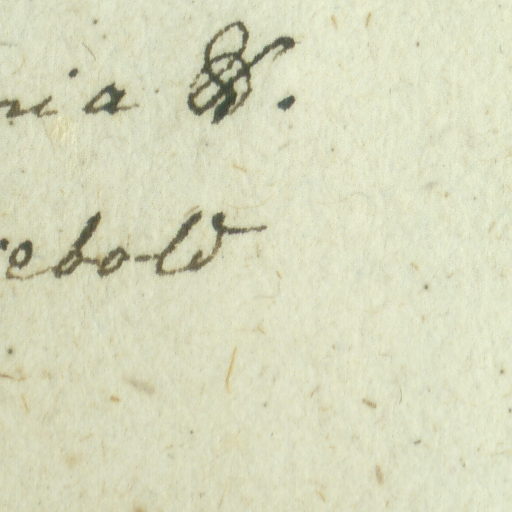 nia &.
rebold